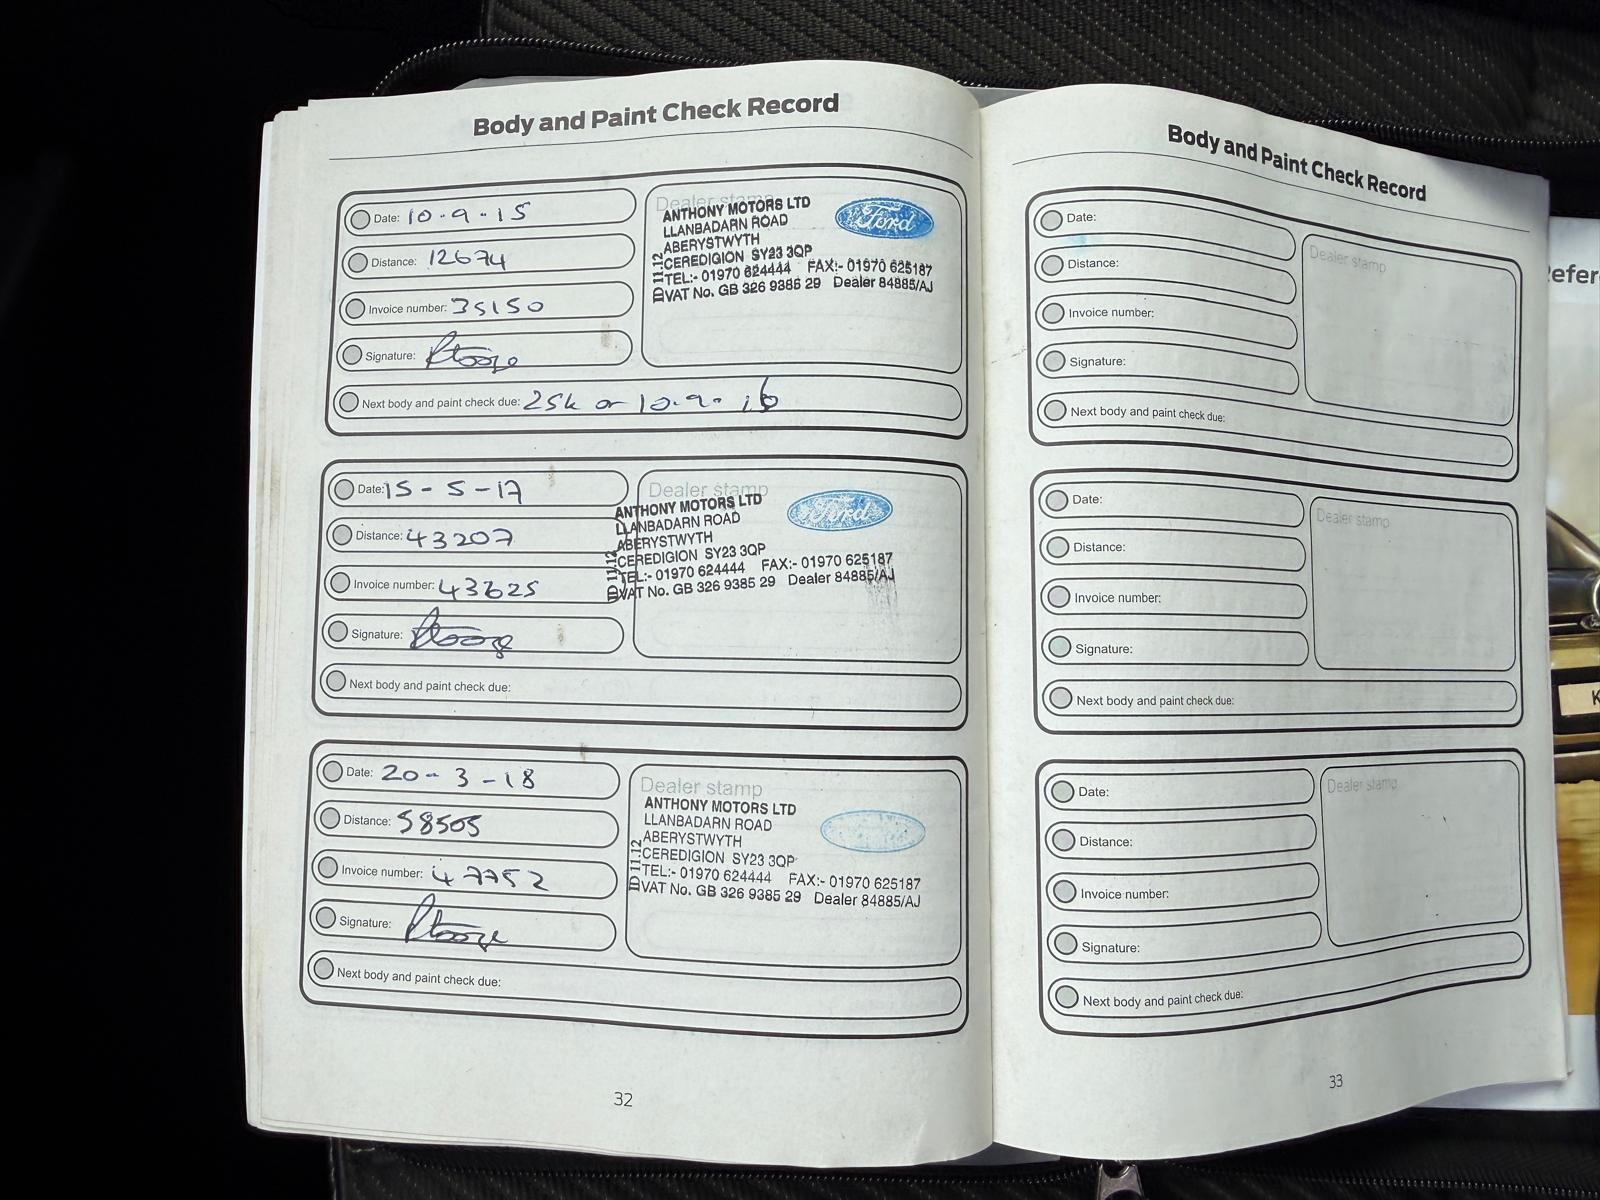 Body and Paint Check Record
Date: 10-9-15
Distance: 12674
Invoice number: 35150
Signature:
Next body and paint check due: 25k or 10.9.16
Dealer stamp
ANTHONY MOTORS LTD
LLANBADARN ROAD
ABERYSTWYTH
CEREDIGION SY23 3QP
TEL:- 01970 624444 FAX:- 01970 625187
VAT No. GB 326 9385 29 Dealer 84885/AJ
D 11.12
Ford
Date: 15-5-17
Distance: 43207
Invoice number: 43625
Signature:
Next body and paint check due:
Dealer stamp
ANTHONY MOTORS LTD
LLANBADARN ROAD
ABERYSTWYTH
CEREDIGION SY23 3QP
TEL:- 01970 624444 FAX:- 01970 625187
VAT No. GB 326 9385 29 Dealer 84885/AJ
D 11.12
Ford
Date: 20-3-18
Distance: 58505
Invoice number: 47752
Signature:
Next body and paint check due:
Dealer stamp
ANTHONY MOTORS LTD
LLANBADARN ROAD
ABERYSTWYTH
CEREDIGION SY23 3QP
TEL:- 01970 624444 FAX:- 01970 625187
VAT No. GB 326 9385 29 Dealer 84885/AJ
D 11.12
32
Body and Paint Check Record
Date:
Distance:
Invoice number:
Signature:
Next body and paint check due:
Dealer stamp
Date:
Distance:
Invoice number:
Signature:
Next body and paint check due:
Dealer stamp
Date:
Distance:
Invoice number:
Signature:
Next body and paint check due:
Dealer stamp
33